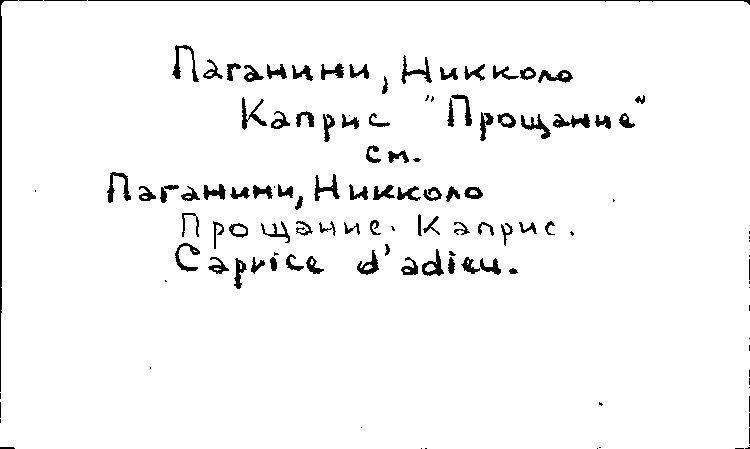 Паганини, Никколо
Каприс "Прощание"
см.
Паганини, Никколо
Прощание. Каприс.
Caprice d'adieu.